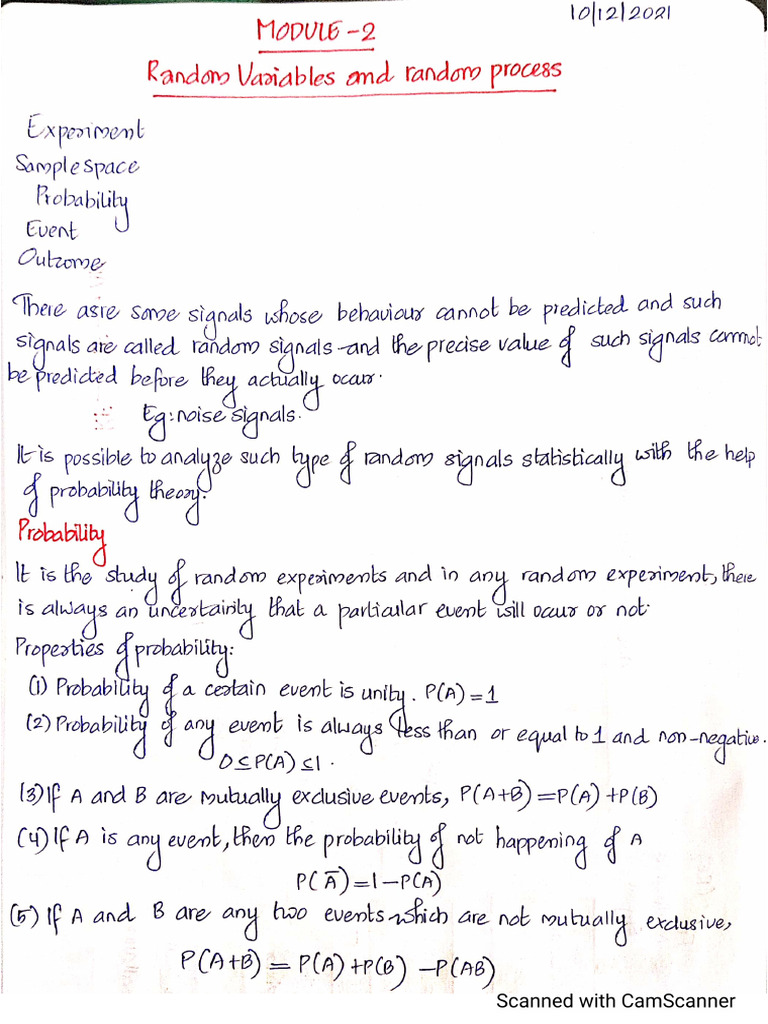 10/12/2021
MODULE-2
Random Variables and random process
Experiment
Sample space
Probability
Event
Outcome
There are some signals whose behaviour cannot be predicted and such
signals are called random signals and the precise value of such signals cannot
be predicted before they actually occur.
Eg: noise signals.
It is possible to analyze such type of random signals statistically with the help
of probability theory.
Probability
It is the study of random experiments and in any random experiment, there
is always an uncertainity that a particular event will occur or not.
Properties of probability:
(1) Probability of a certain event is unity. P(A) = 1
(2) Probability of any event is always less than or equal to 1 and non-negative.
0 ≤ P(A) ≤ 1.
(3) If A and B are mutually exclusive events, P(A+B) = P(A) + P(B)
(4) If A is any event, then the probability of not happening of A
P(Ā) = 1 - P(A)
(5) If A and B are any two events which are not mutually exclusive,
P(A+B) = P(A) + P(B) - P(AB)
Scanned with CamScanner